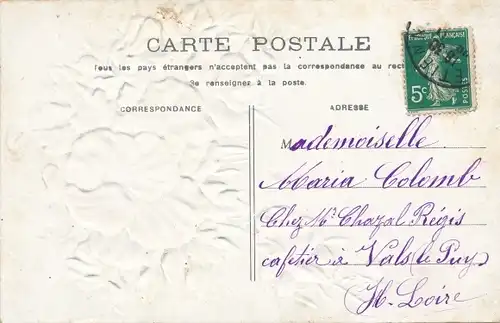 CARTE POSTALE
Tous les pays étrangers n'acceptent pas la correspondance au recto
Se renseignez à la poste.
CORRESPONDANCE
ADRESSE
RÉPUBLIQUE FRANÇAISE
5c
POSTES
Mademoiselle
Maria Colomb
Chez Mr Chazal Régis
cafetier à Vals (le Puy)
Hte-Loire